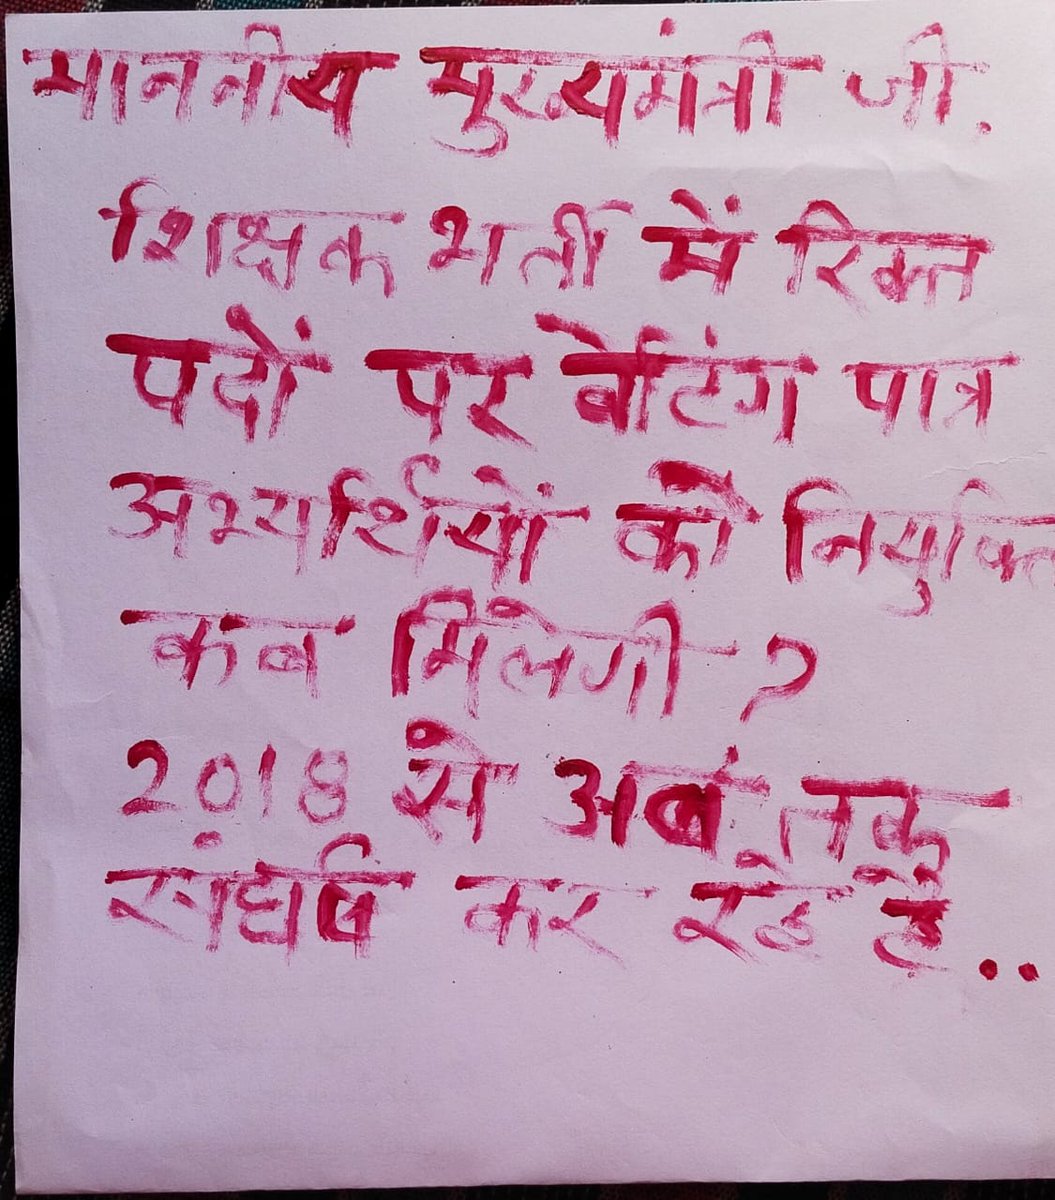 माननीय मुख्यमंत्री जी.
शिक्षक भर्ती में रिक्त
पदों पर वेटिंग पात्र
अभ्यर्थियों को नियुक्ति
कब मिलेगी ?
2018 से अब तक
संघर्ष कर रहे है..